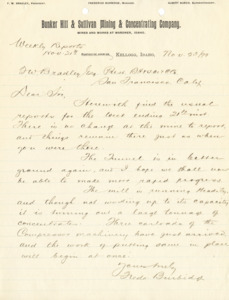 Bunker Hill & Sullivan Mining & Concentrating Company.
MINES AND WORKS AT WARDNER, IDAHO.
Weekly Report
Nov. 20th
KELLOGG, IDAHO, Nov. 22/99
F.W. Bradley, Esq. Pres. B.H. & S.
San Francisco Calif.
Dear Sir,
Herewith find the usual
reports for the week ending 20th inst.
There is no change as the mine to report,
and things remain there just as when
you were there.
The Tunnel is in better
ground again, and I hope we shall now
be able to make more rapid progress.
The mill is running steadily
and though not working up to its capacity
it is turning out a large tonnage of
concentrates. Three carloads of the
Compressor machinery have just arrived
and the work of putting same in place
will begin at once.
Yours truly
Fredk Burbidge